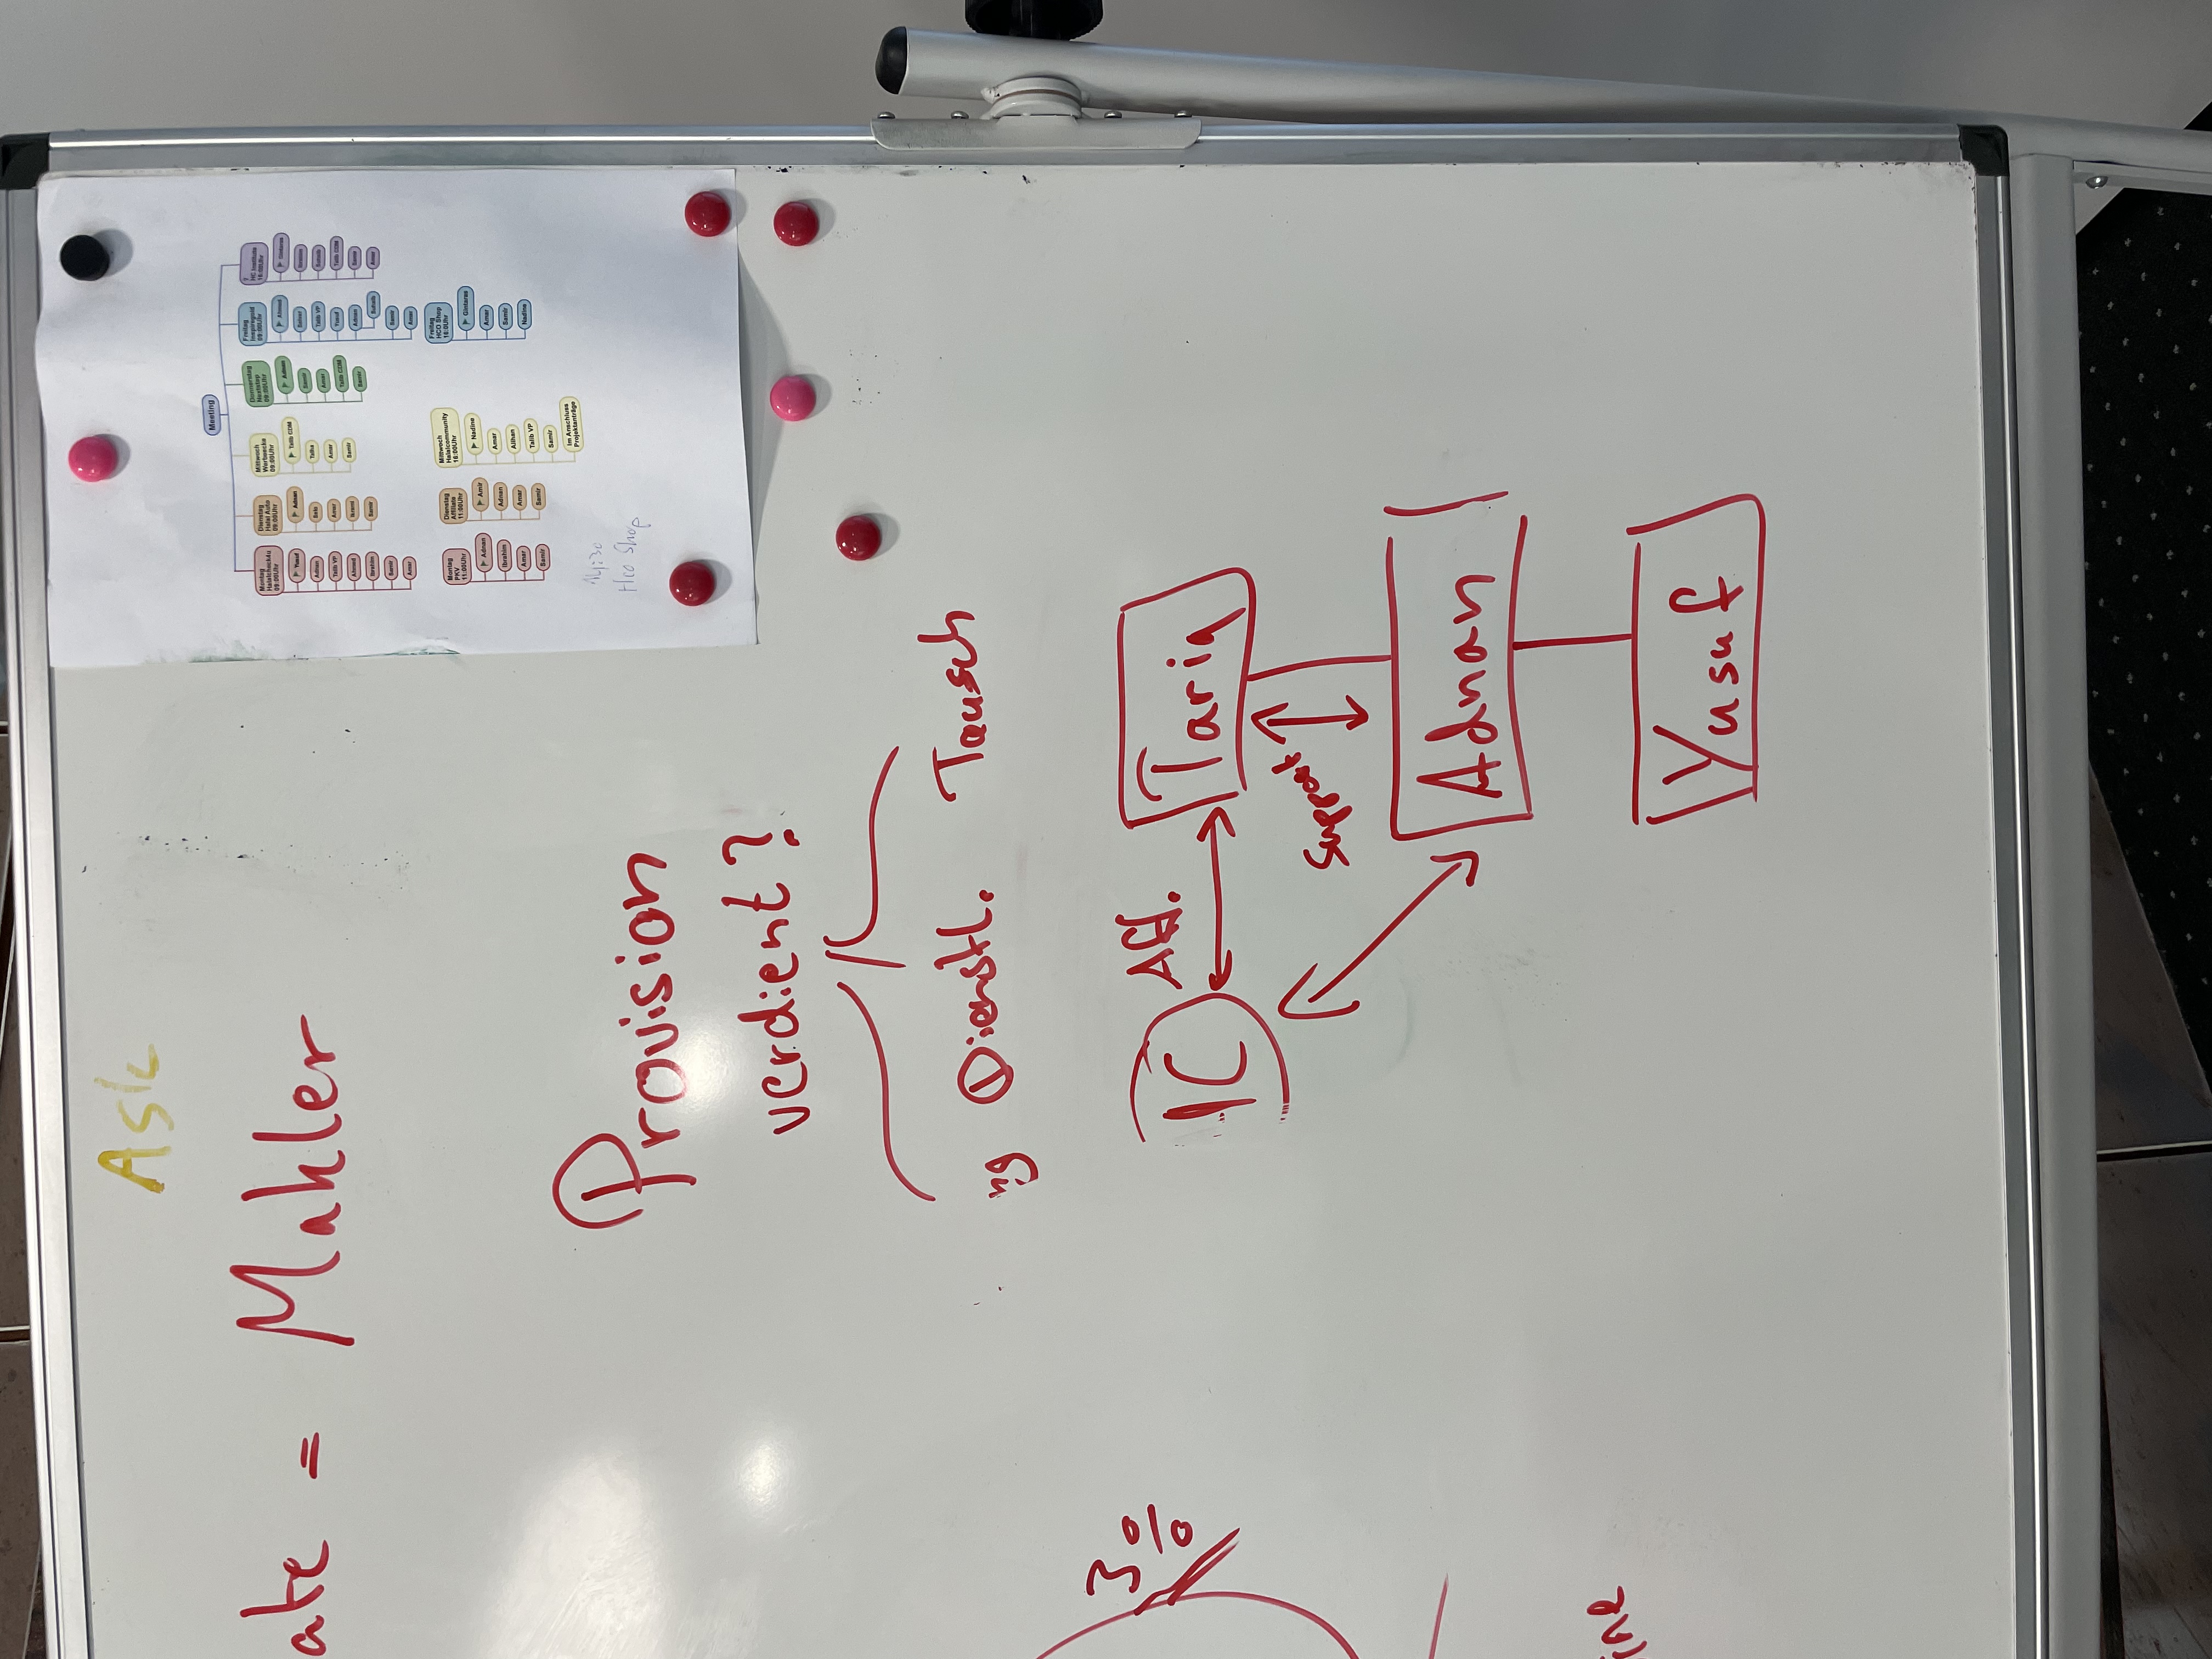 Ask
ate = Makler
Provision
verdient?
ng Dienstl. Tausch
3%
IC Aff. Tariq
Support
Adnan
ine
Yusuf
Meeting
Montag
Halalcheck4u
09:00Uhr
Yusuf
Adnan
Talib VP
Ahmed
Ibrahim
Samir
Amar
Dienstag
Halal Auto
09:00Uhr
Adnan
Amar
Ikrami
Samir
Mittwoch
Werbeecke
09:00Uhr
Talib CDM
Talha
Amar
Samir
Donnerstag
Nextstep
09:00Uhr
Adnan
Samir
Amar
Talib CDM
Samir
Freitag
Inspiregold
09:00Uhr
Ahmed
Talib VP
Yusuf
Adnan
Sahaib
Samir
Amar
?
HC Institute
16:00Uhr
Gintaras
Ibrahim
Sahaib
Talib CDM
Samir
Amar
Montag
PKV
11:00Uhr
Adnan
Ibrahim
Amar
Samir
Dienstag
Affiliate
11:00Uhr
Amir
Adnan
Amar
Samir
Mittwoch
Halalcommunity
16:00Uhr
Nadine
Amar
Alihan
Talib VP
Samir
Im Anschluss
Projektanträge
Freitag
HCO Shop
16:0Uhr
Gintaras
Amar
Samir
Nadine
14:30
Hco Shop